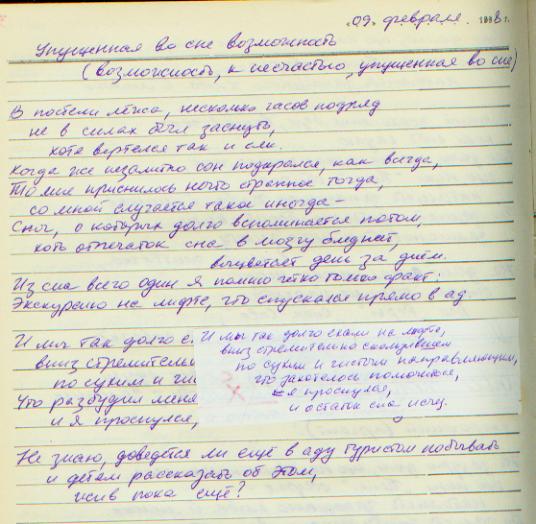 09 февраля 1998 г.
Упущенная во сне возможность
(возможность, к несчастью, упущенная во сне)
В постели лёжа, несколько часов подряд
не в силах был заснуть,
хотя вертелся так и сяк.
Когда же незаметно сон подкрался, как всегда,
То мне приснилось нечто странное тогда,
со мной случается такое иногда –
Сны, о которых долго вспоминается потом,
хоть отпечаток сна в мозгу бледнеет,
выцветает день за днём.
Из сна всего один я помню чётко только факт:
Экскурсию на лифте, что спускался прямо в ад.
И мы так долго е
вниз стремительн
по сухим и чис
Что разбудил меня
и я проснулся,
И мы так долго ехали на лифте,
вниз стремительно скользившем
по сухим и чистым направляющим,
что захотелось помочиться,
и я проснулся,
и остаток сна исчез.
Не знаю, доведётся ли ещё в аду туристом побывать
и детям рассказать об этом,
жив пока ещё?